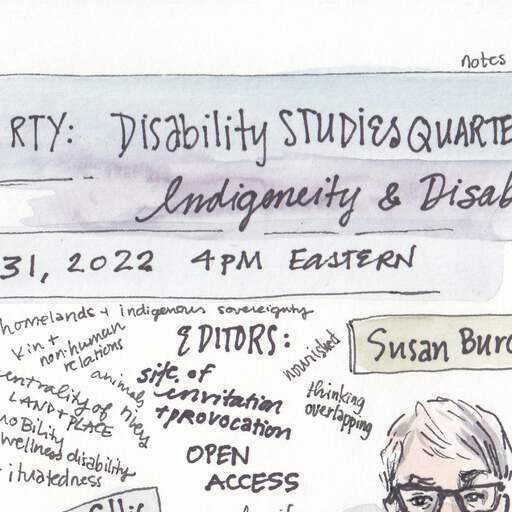 notes
RTY: Disability STUDIES QUARTE
Indigeneity & Disab
31, 2022 4PM EASTERN
homelands + indigenous sovereignty
kin +
non-human
relations
animals
centrality of
LAND + PLACE
mobility
wellness disability
ituatedness
EDITORS:
site of
invitation
+ provocation
OPEN
ACCESS
nourished
thinking
overlapping
Susan Burc